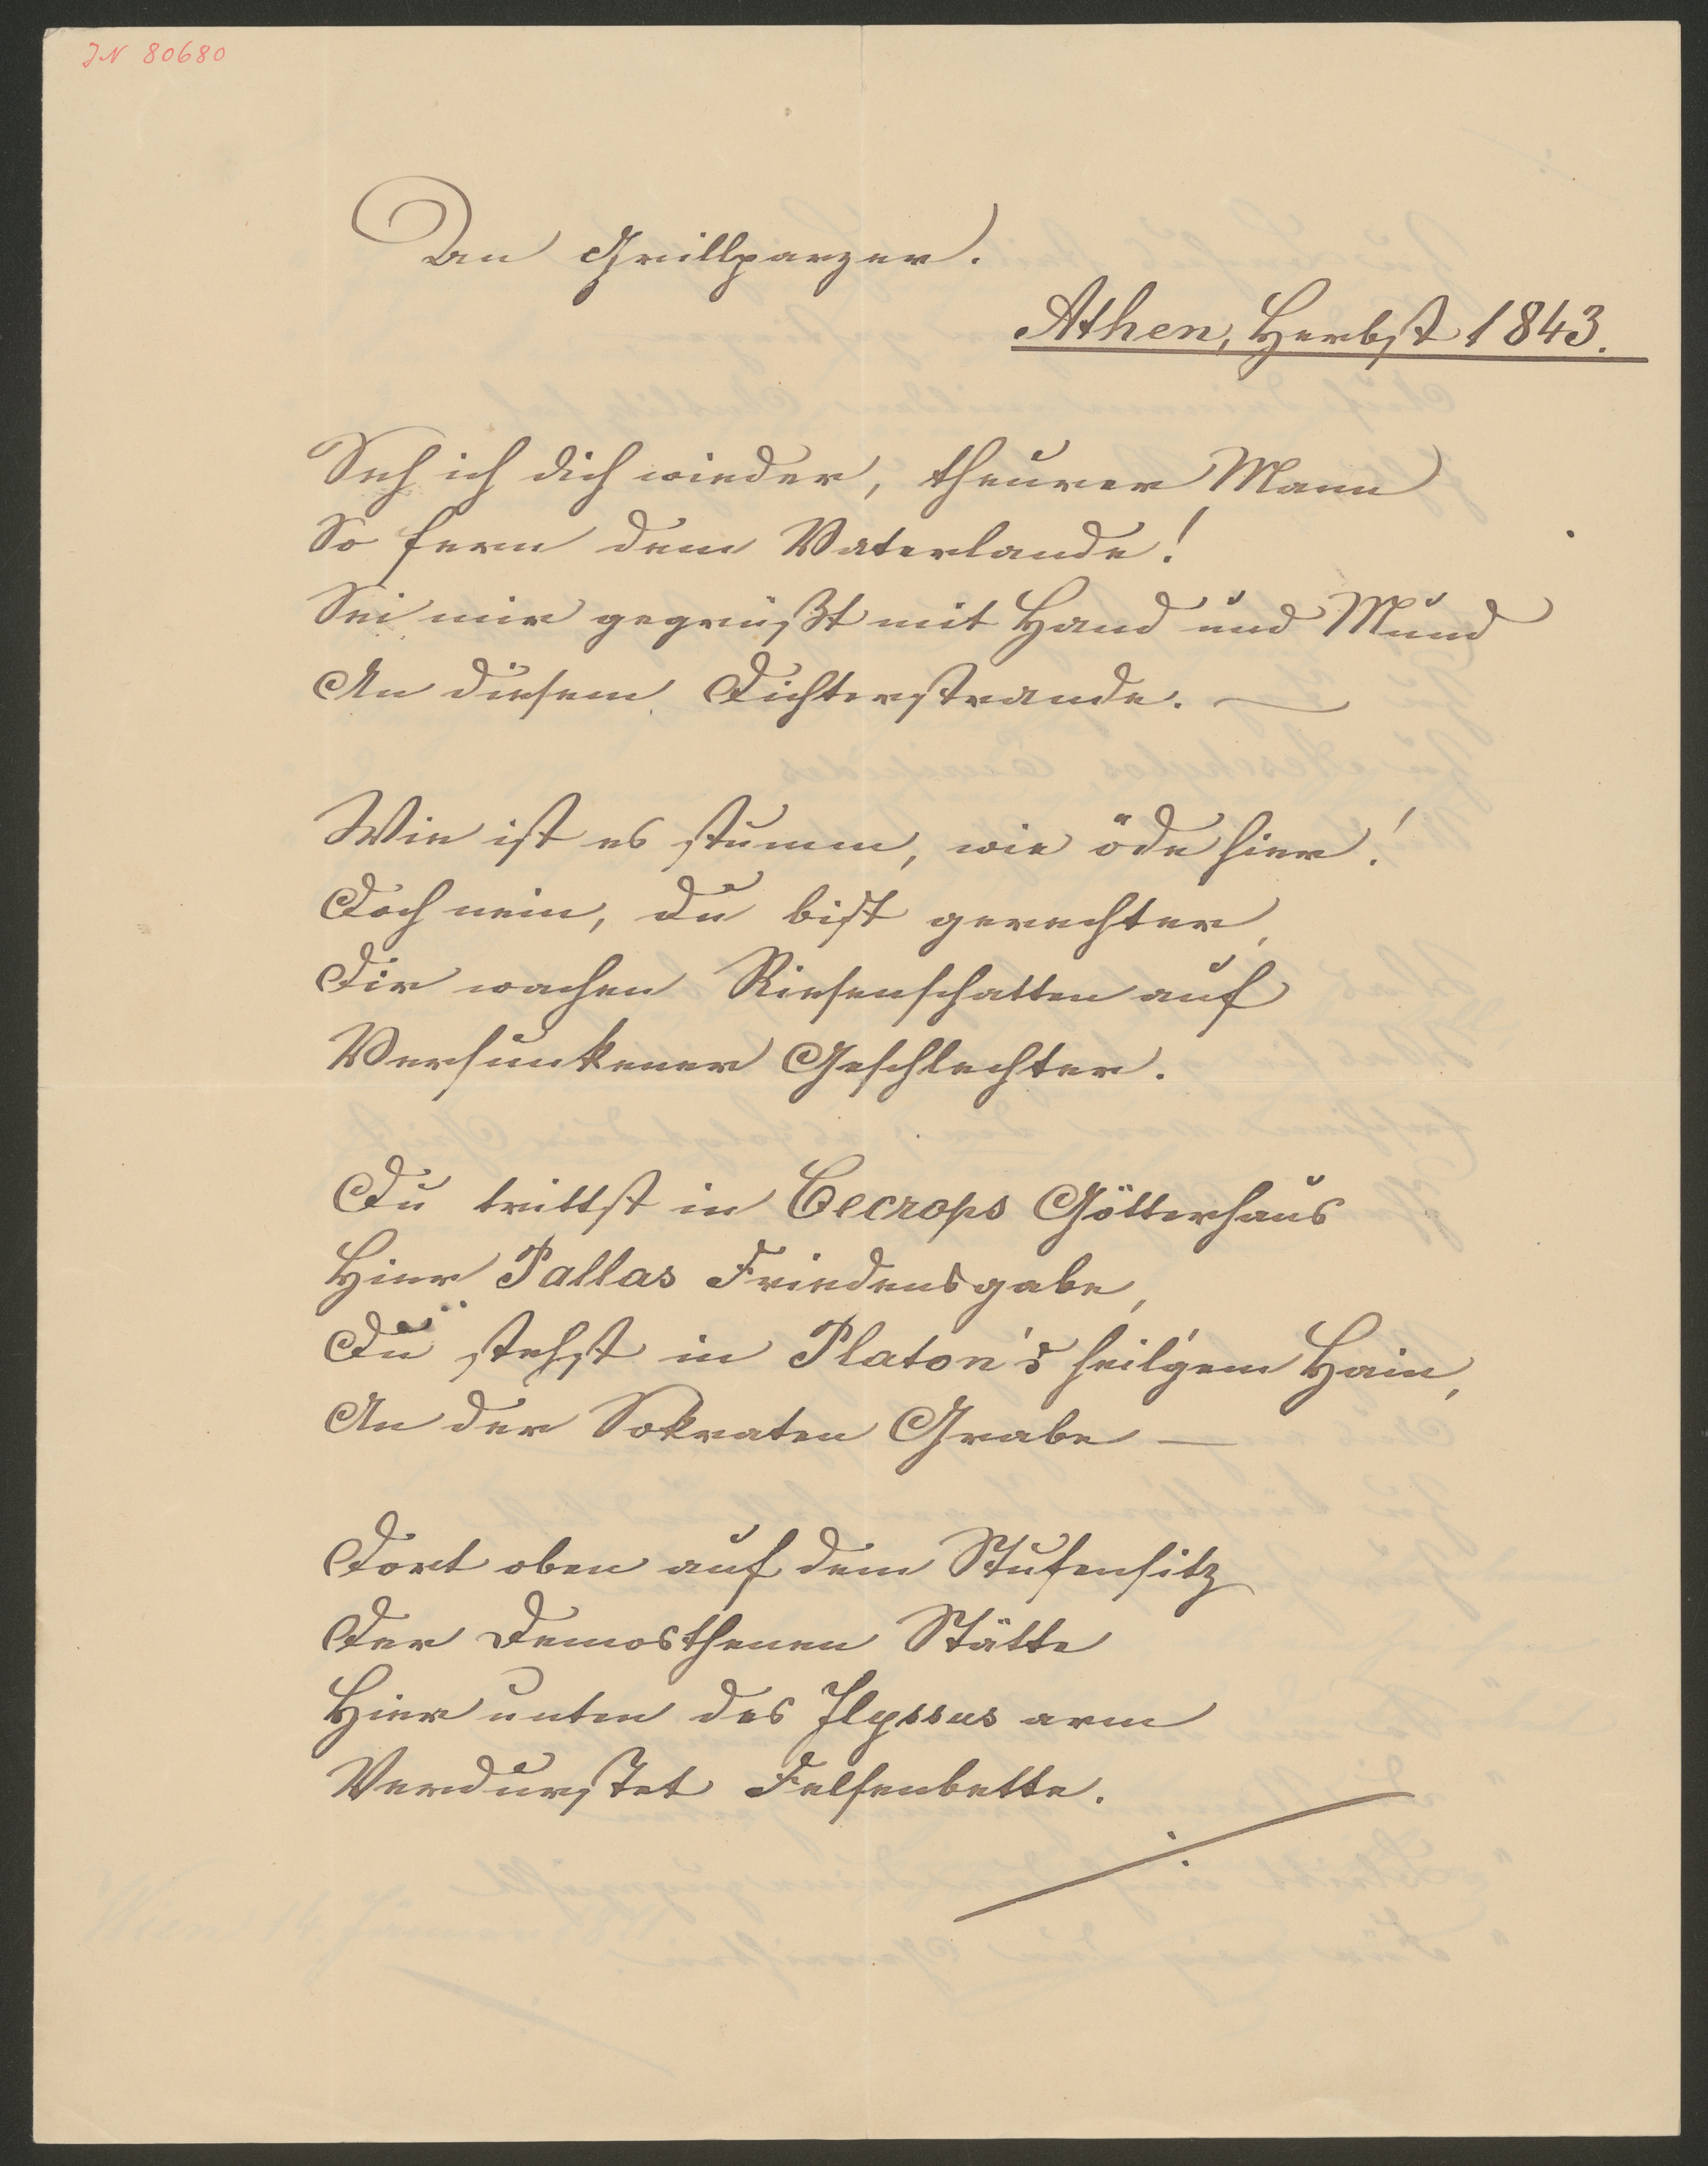 IN 80680
An Grillparzer.
Athen, Herbst 1843.
Seh ich dich wieder, theurer Mann
So fern dem Vaterlande!
Sei mir gegrüßt mit Hand und Mund
An diesem Dichterstrande. —
Wie ist es stumm, wie öde hier!
Doch nein, du bist gerechter,
Dir wachen Riesenschatten auf
Versunkener Geschlechter.
Du trittst in Cecrops Götterhaus
Hier Pallas Friedensgabe,
Du stehst in Platon's heil'gem Hain,
An der Sokraten Grabe —
Dort oben auf dem Stufensitz
Der Demosthenen Stätte
Hier unten des Ilyssus arm
Verdurstet Felsenbette.